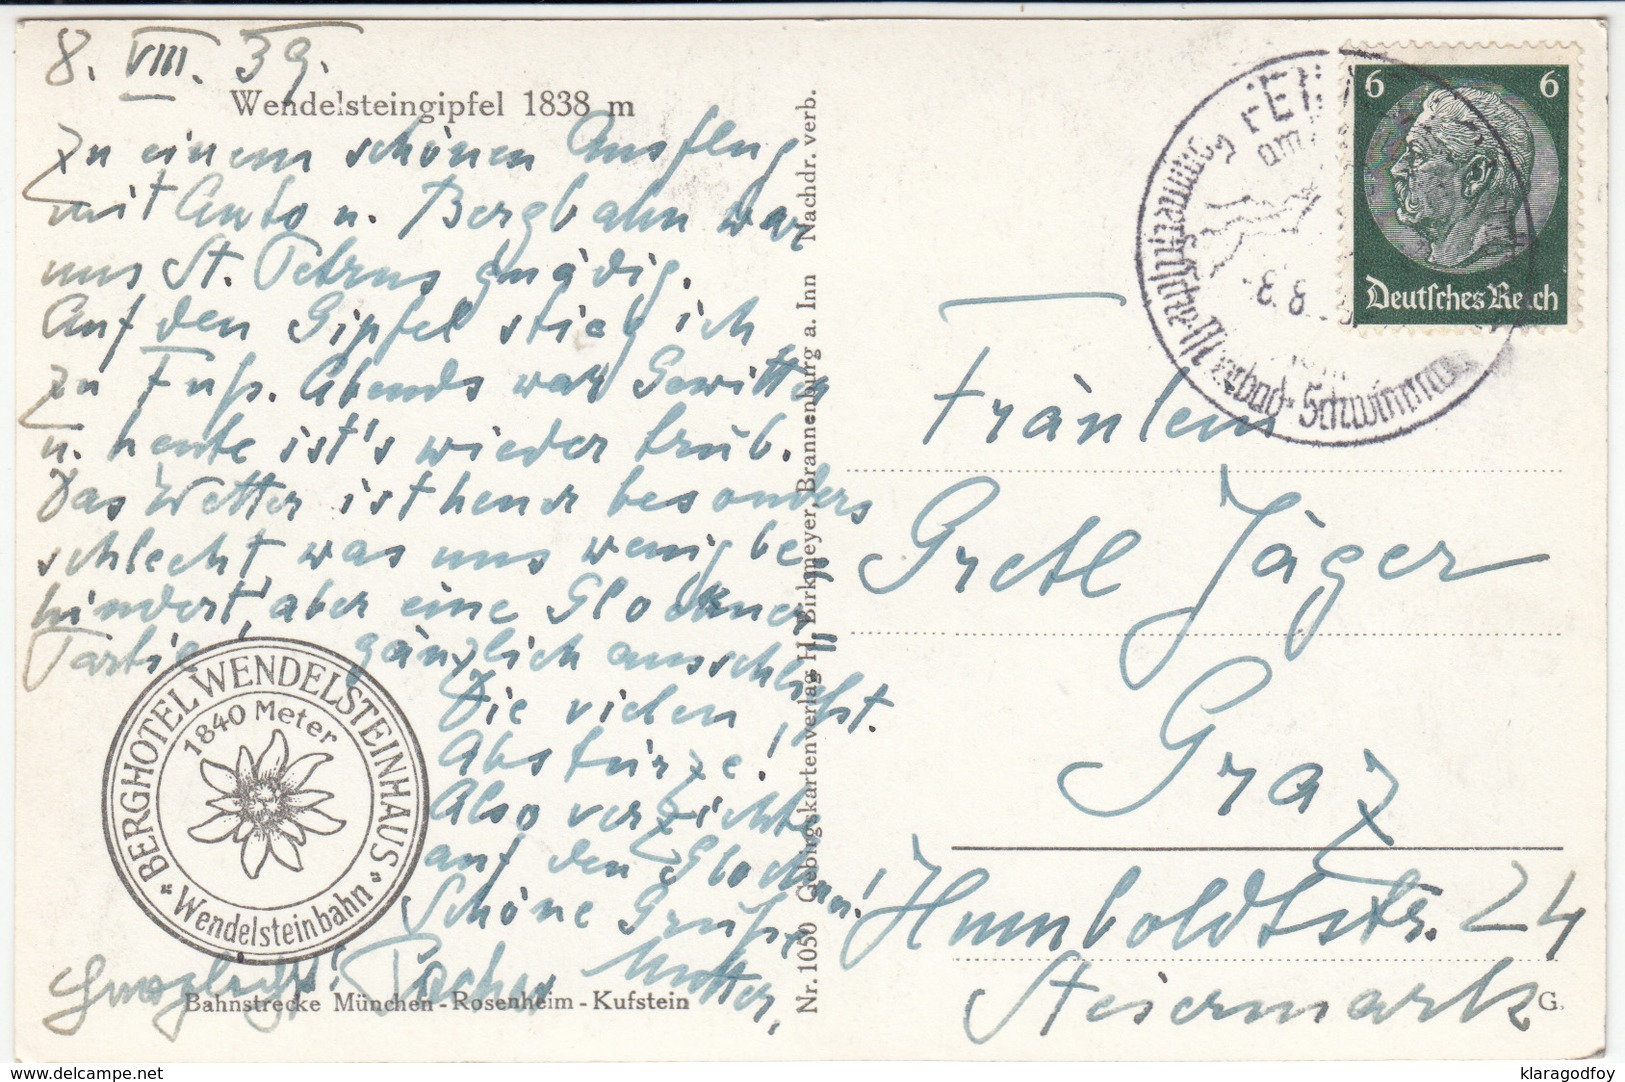 8. VIII. 39.
Wendelsteingipfel 1838 m
Zu einem schönen Ausflug
mit Auto u. Bergbahn war
uns St. Petrus gnädig.
Auf den Gipfel stieg ich
zu Fuß. Abends war Gewitter
u. heute ist's wieder trüb.
Das Wetter ist heuer besonders
schlecht was uns wenig be-
hindert, aber eine Glockner
Partie gänzlich ausschließt.
Die vielen
Abstürze!
Also verzichte
auf den Glockner!
Schöne Grüße
Mutter,
BERGHOTEL WENDELSTEINHAUS
1840 Meter
"Wendelsteinbahn"
Bahnstrecke München - Rosenheim - Kufstein
Nr. 1050 Gebirgskartenverlag H. Birkmeyer, Brannenburg a. Inn Nachdr. verb.
am
8.8.
Schwimmbad
6 6
Deutsches Reich
Fräulein
Gretl Jäger
Graz
Humboldtstr. 24
Steiermark
G.
delcampe.net
klaragodfoy